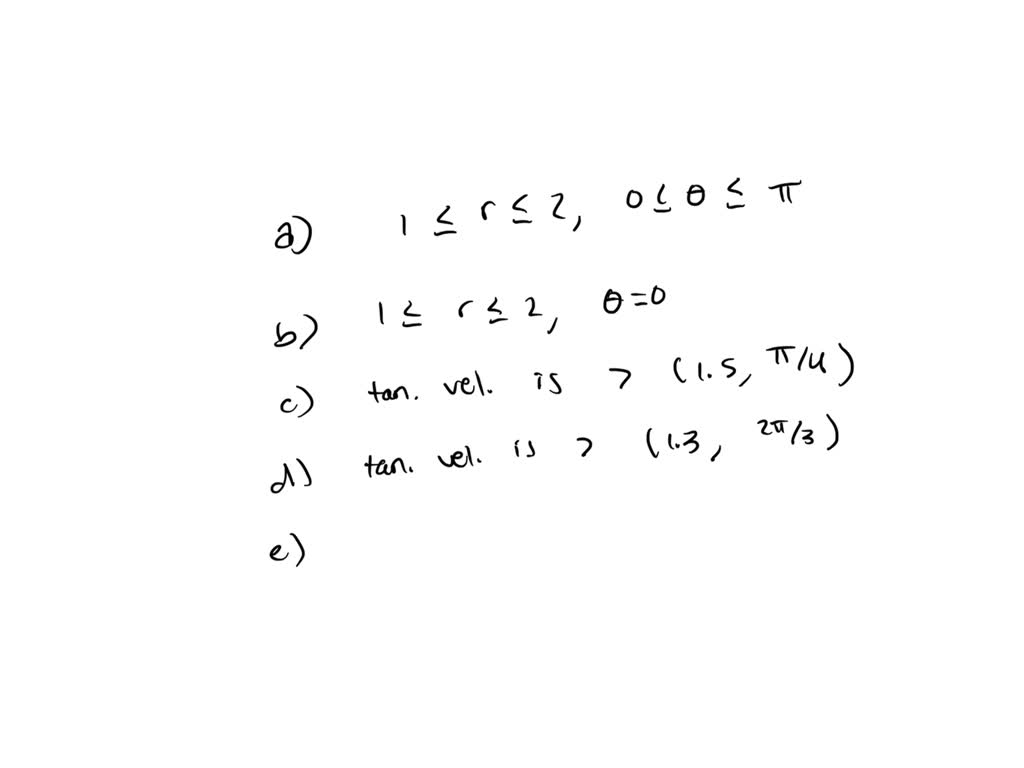 a) 1 ≤ r ≤ 2, 0 ≤ θ ≤ π
b) 1 ≤ r ≤ 2, θ=0
c) tan. vel. is > (1.5, π/4)
d) tan. vel. is > (1.3, 2π/3)
e)